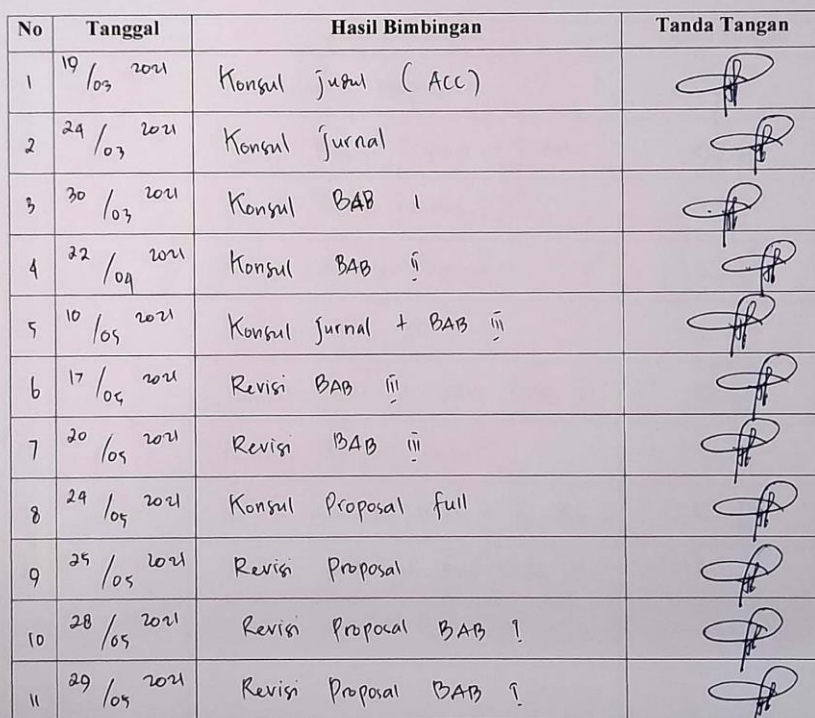 No Tanggal Hasil Bimbingan Tanda Tangan
1 19/03 2021 Konsul judul (ACC)
2 24/03 2021 Konsul jurnal
3 30/03 2021 Konsul BAB I
4 22/04 2021 Konsul BAB II
5 10/05 2021 Konsul jurnal + BAB III
6 17/05 2021 Revisi BAB III
7 20/05 2021 Revisi BAB III
8 24/05 2021 Konsul Proposal full
9 25/05 2021 Revisi Proposal
10 28/05 2021 Revisi Proposal BAB I
11 29/05 2021 Revisi Proposal BAB I